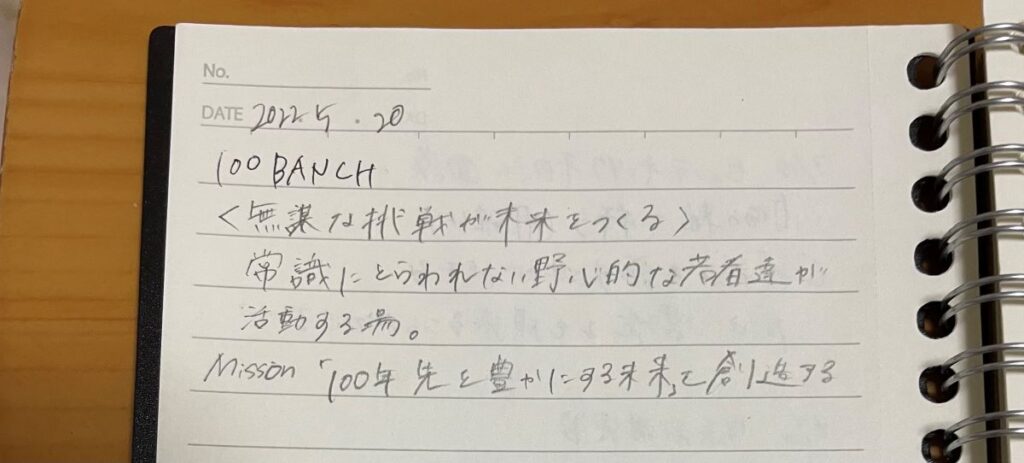 No.
DATE 2022 5 . 20
100 BANCH
<無謀な挑戦が未来をつくる>
常識にとらわれない野心的な若者達が
活動する場。
Misson 「100年先を豊かにする未来」を創造する